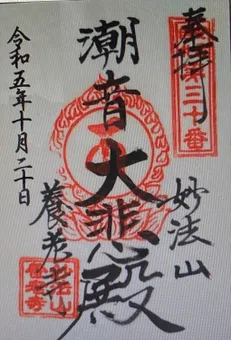 奉拝
第三十番
妙法山
潮音大悲殿
養老寺
令和五年十月二十日